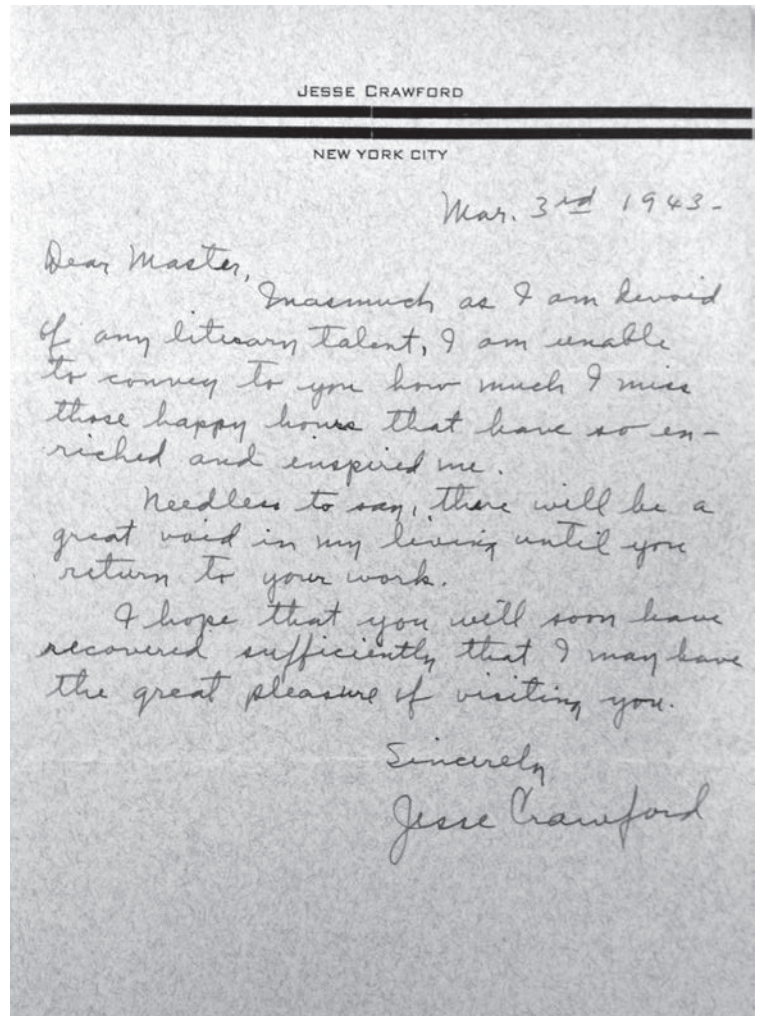 JESSE CRAWFORD
NEW YORK CITY
Mar. 3rd 1943-
Dear Master,
Inasmuch as I am devoid
of any literary talent, I am unable
to convey to you how much I miss
those happy hours that have so en-
riched and inspired me.
Needless to say, there will be a
great void in my living until you
return to your work.
I hope that you will soon have
recovered sufficiently that I may have
the great pleasure of visiting you.
Sincerely
Jesse Crawford